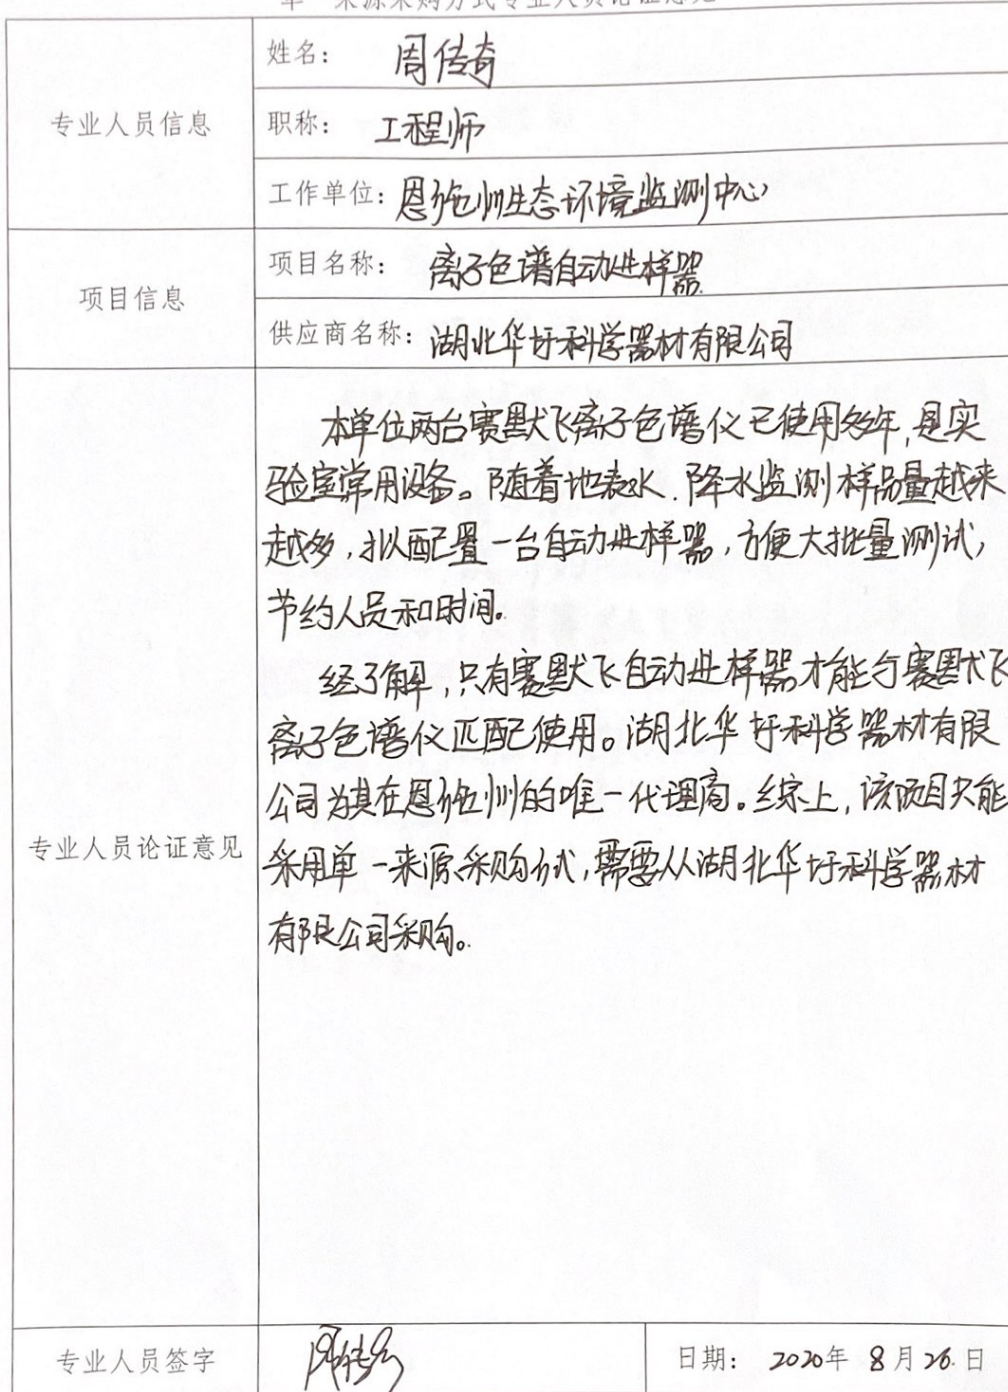 单一来源采购方式专业人员论证意见
专业人员信息
姓名： 周传奇
职称： 工程师
工作单位：恩施州生态环境监测中心
项目信息
项目名称： 离子色谱自动进样器
供应商名称：湖北华圩科学器材有限公司
专业人员论证意见
本单位两台赛默飞离子色谱仪已使用多年，是实
验室常用设备。随着地表水、降水监测样品量越来
越多，拟配置一台自动进样器，方便大批量测试，
节约人员和时间。
经了解，只有赛默飞自动进样器才能与赛默飞
离子色谱仪匹配使用。湖北华圩科学器材有限
公司为其在恩施州的唯一代理商。综上，该项目只能
采用单一来源采购方式，需要从湖北华圩科学器材
有限公司采购。
专业人员签字
周传奇
日期： 2020年 8月26日